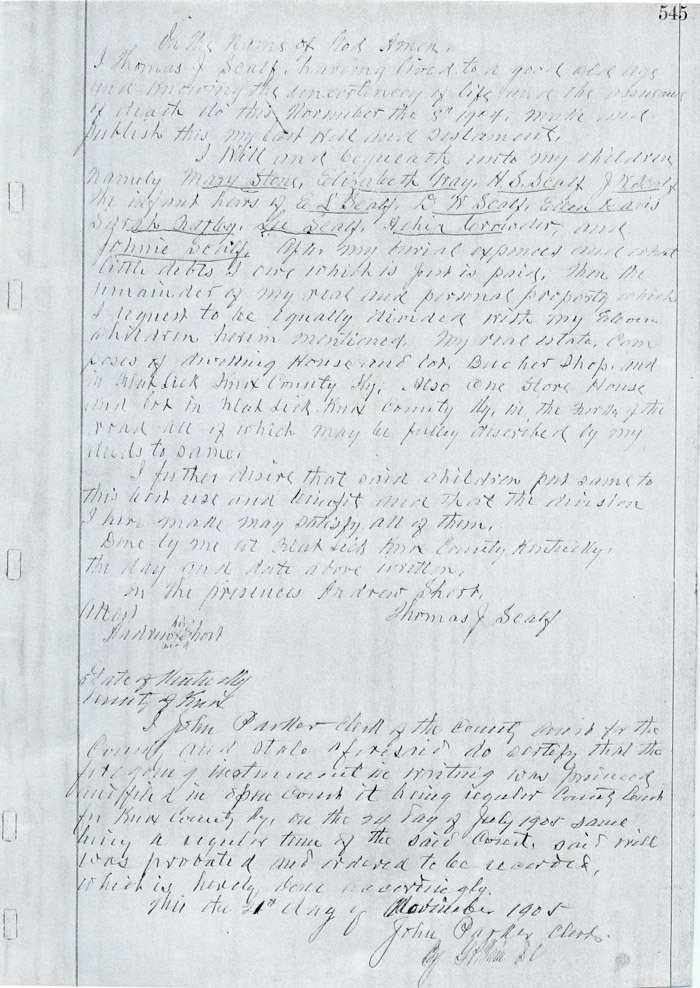 545
In the Name of God Amen.
I Thomas J Scalf, having lived to a good old age
and knowing the uncertenty of life and the
of death do this November the 8th 1904, make and
publish this my last Will and Testament.
I Will and bequeath unto my children
namely Mary Stone, Elizabeth Gray, H. S. Scalf
the infant heirs of E L Scalf, D W Scalf, Ellen Davis
Sarah Lee Scalf, Crowder, and
Johnie Scalf. After my burial expences and what
little debts I owe which is just is paid, then the
remainder of my real and personal property which
I request to be equally divided with my Eleven
children herin mentioned. My real estate, Com
poses of dwelling House and lot, Bucher Shop, and
in Flat Lick Knox County Ky, Also One Store House
and lot in Flat Lick Knox County Ky, in the Forks of the
road all of which may be fulley described by my
deeds to same.
I futher desire that said children put same to
this best use and benefit and that the division
I here made may satisfy all of them.
Done by me at Flat Lick Knox County Kentucky,
the day and date above written,
in the presences Andrew Short.
Attest Thomas J Scalf
his
Andrew x Short
mark
State of Kentucky
County of Knox
I John Parker Clerk of the County Court for the
County and State aforesaid do certify that the
foregoing instrument in writing was produced
in open Court it being regular County Court
for Knox County Ky, on the 24 day of July 1905 same
being a regular term of the said Court, said will
was probated and ordered to be recorded,
which is hereby done accordingly.
This the 21st day of November 1905
John Parker Clerk.
By DC